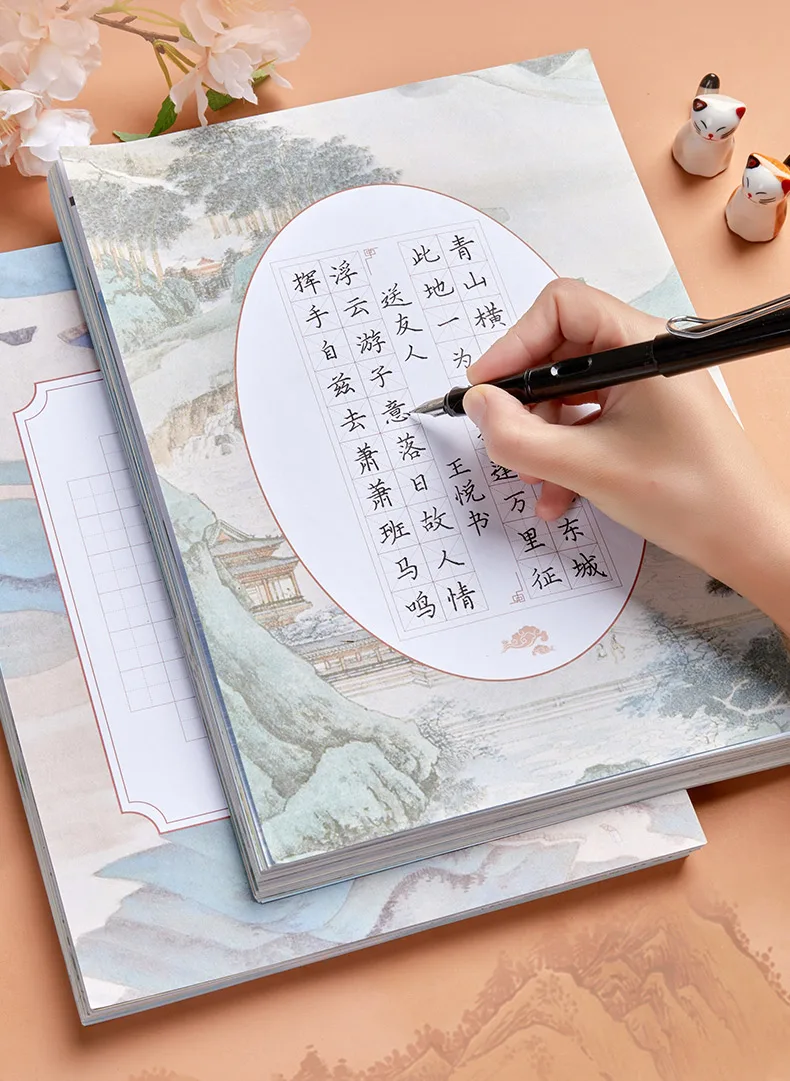 青山横
东城
此地一为
蓬万里征
送友人
王悦书
浮云游子意落日故人情
挥手自兹去萧萧班马鸣